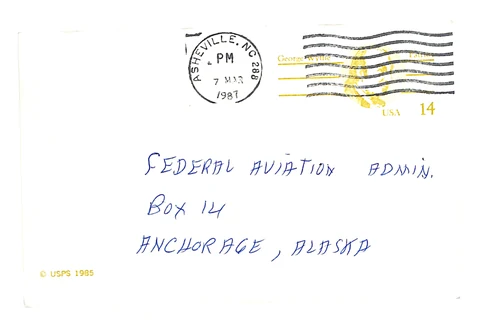 ASHEVILLE, NC 288
PM
7 MAR
1987
George Wythe
USA 14
FEDERAL AVIATION ADMIN.
BOX 14
ANCHORAGE, ALASKA
© USPS 1985